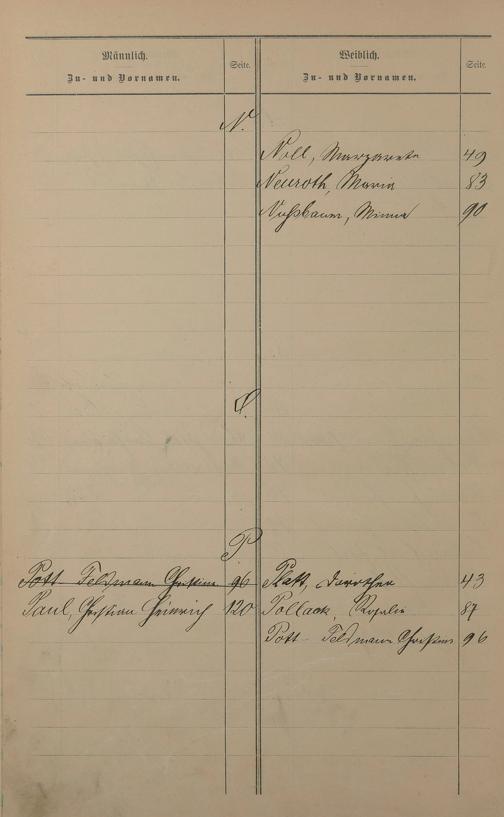 Männlich. Seite. Weiblich. Seite.
Zu- und Vornamen. Zu- und Vornamen.
N.
Noll, Margarete 49
Neuroth, Maria 83
Nußbaum, Minna 90
O.
P
Pott- Feldmann Christian 96 Platt, Dorothea 43
Paul, Christian Heinrich 120 Pollack, Rosalie 87
Pott- Feldmann Christian 96